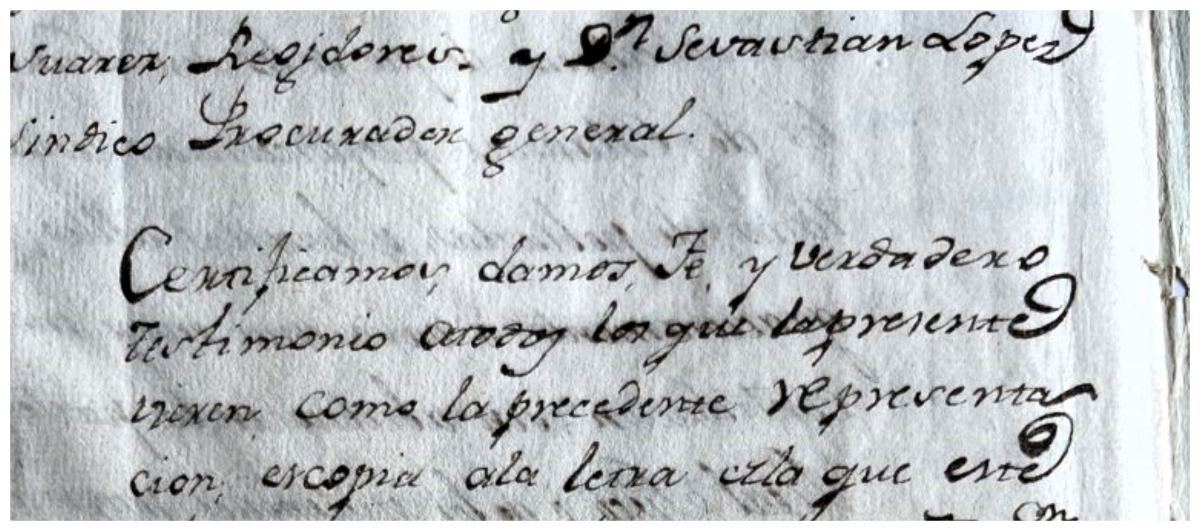 Suarez, Regidores. y D.n Sevastian Lopez
Sindico Procurador general.
Certificamos, damos, Fe, y verdadero
Testimonio atodos los que lapresente
vieren, como la precedente representa
cion, escopia ala letra dela que este